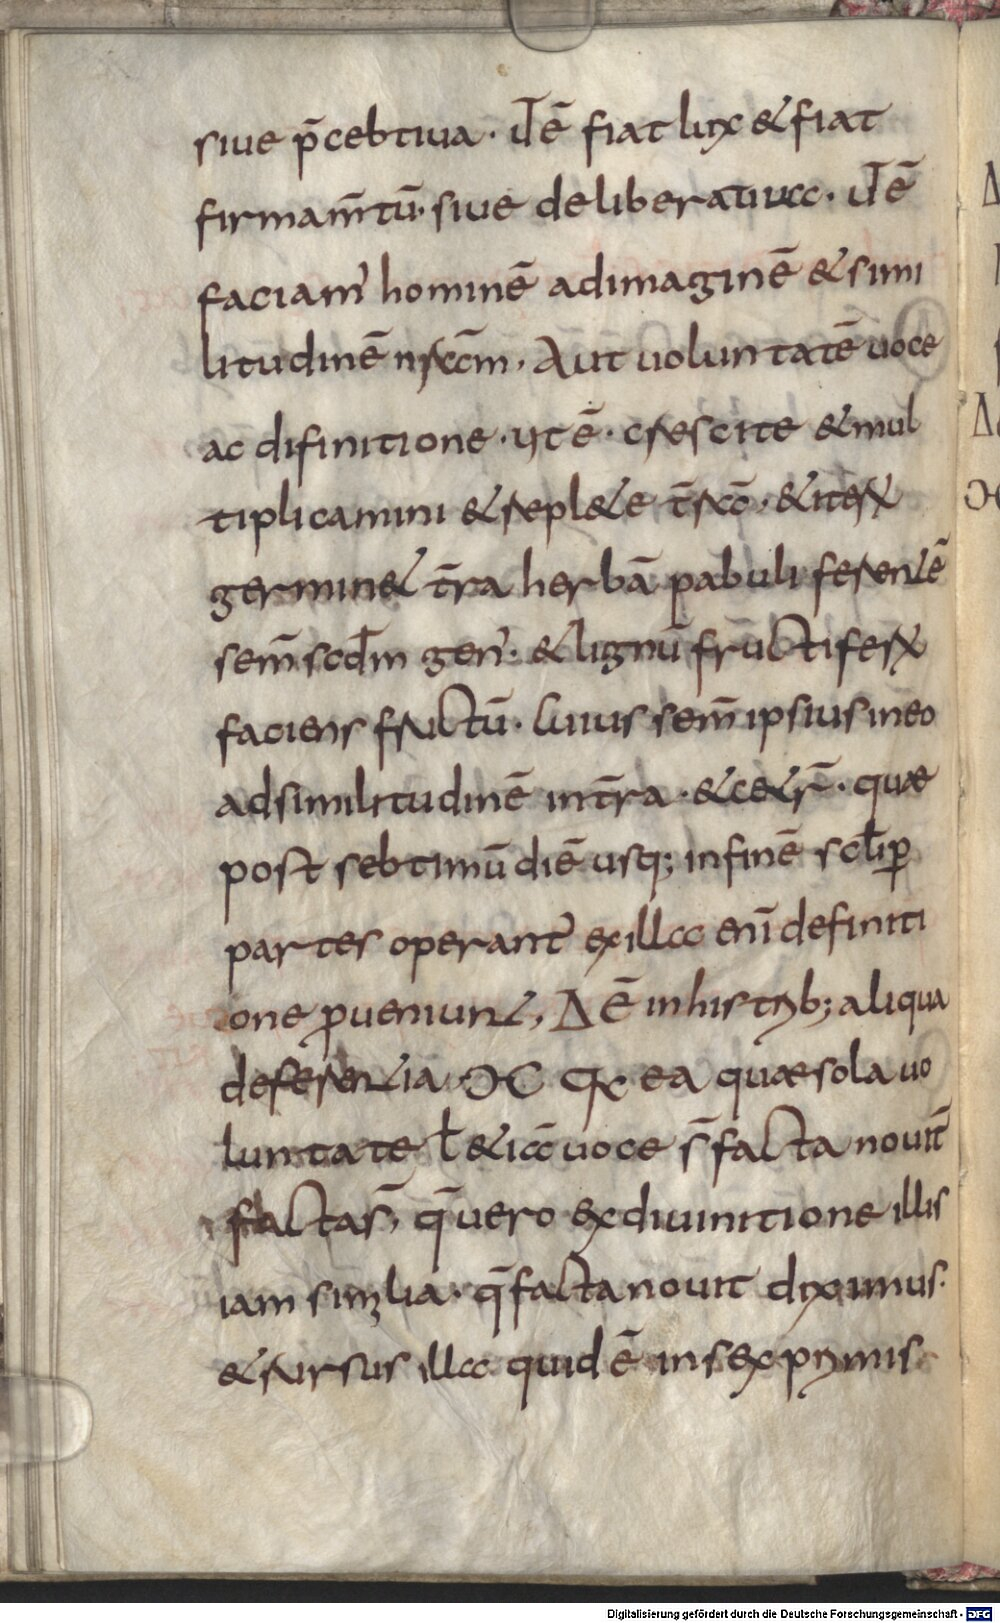 siue p̄cebtiua · ut ē fiat lux & fiat
firmam̄tū · siue deliberatiua · ut ē
faciam' hominē ad imaginē & simi
litudinē nr̄am · Aut uoluntatē uoce
ac difinitione · ut ē · crescite & mul
tiplicamini & repl&e t̄rā · & iter
germin& t̄ra herbā pabuli ferentē
sem̄ scd̄m gen' · & lignū fructifer
faciens fructū · cuius sem̄ ipsius in eo
ad similitudinē in t̄ra · & c&r̄ · quae
post sebtimū diē usq; in finē scl̄i p
partes operant' ex illa enī definiti
one proueniunt, Δ Ē in his trib; aliqua
deferentia · ƆC qr ea quae sola uo
luntate ł &iā uoce s̄ facta nouit̄
facta s̄, q̄ uero ex diuinitione illis
iam similia · q̄ facta nouit diximus ·
& rursus illa quid ē in sex primis
Digitalisierung gefördert durch die Deutsche Forschungsgemeinschaft - DFG